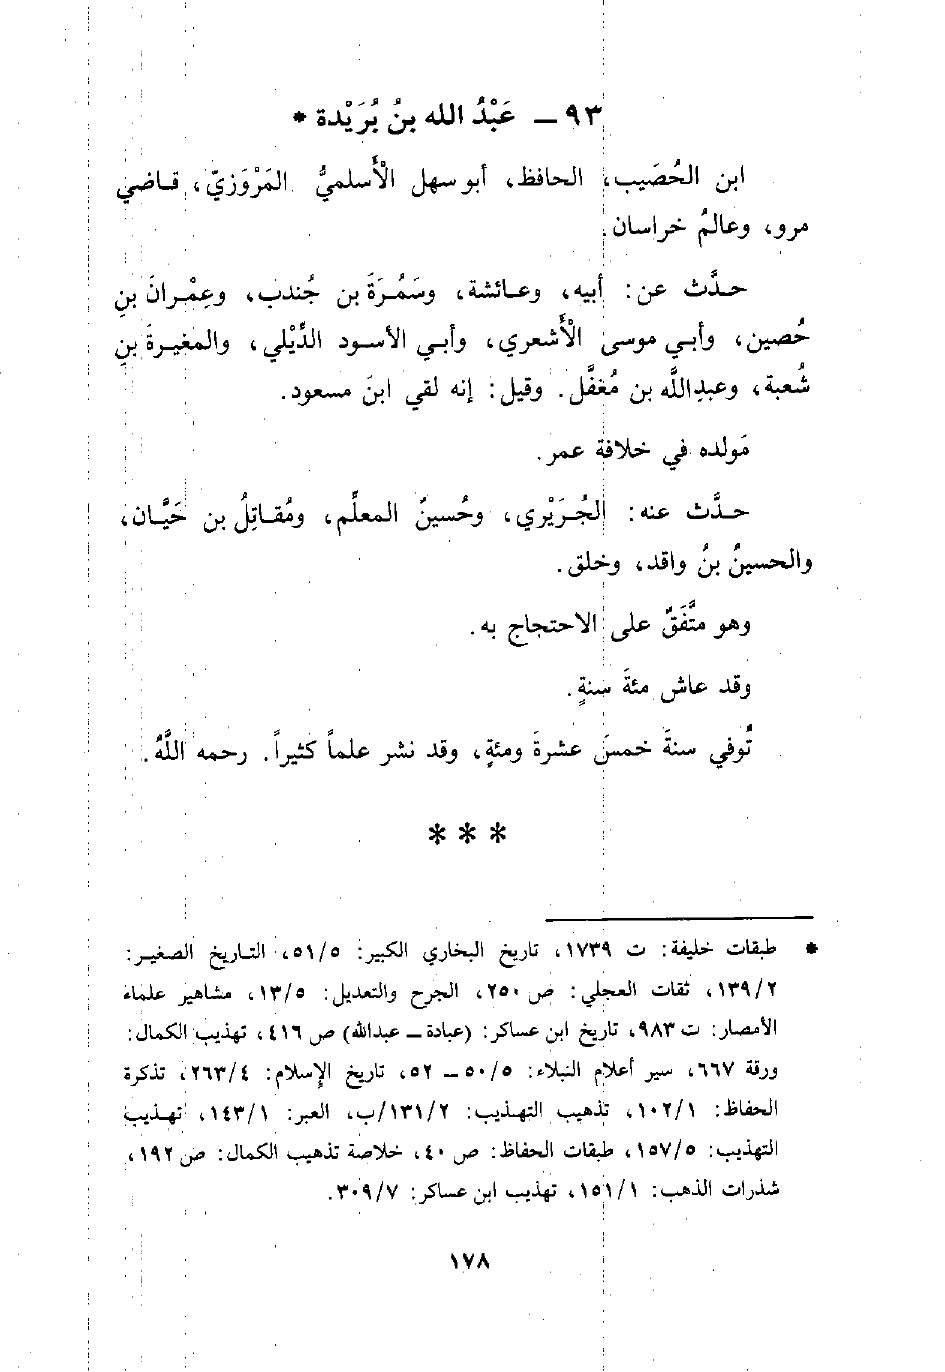 ٩٣ ـ عَبْدُ الله بنُ بُرَيْدة *
ابن الحُصَيب، الحافظ، أبو سهل الْأَسلميُّ المَرْوَزيّ، قـاضي
مرو، وعالمُ خراسان.
حـدَّث عن: أبيه، وعـائشة، وسَمُـرَةَ بن جُندب، وعِمْـرانَ بنِ
حُصين، وأبـي موسى الْأَشعري، وأبـي الأسـود الدِّيْلي، والمغيـرةَ بنِ
شُعبة، وعبدِ اللَّه بن مُغفَّل. وقيل: إنه لقي ابنَ مسعود.
مَولده في خلافة عمر.
حـدَّث عنه: الجُـرَيْري، وحُسينٌ المعلِّم، ومُقـاتِلُ بن حَيَّـان،
والحسينُ بنُ واقد، وخلق.
وهو متَّفَقٌ على الاحتجاج به.
وقد عاش مئةَ سنةٍ.
تُوفي سنةَ خمسَ عشرةَ ومئةٍ، وقد نشر علماً كثيراً. رحمه اللَّهُ.
* * *
* طبقات خليفة: ت ١٧٣٩، تاريخ البخاري الكبير: ٥١/٥، التـاريخ الصغيـر:
١٣٩/٢، ثقات العجلي: ص ٢٥٠، الجرح والتعديل: ١٣/٥، مشاهير علماء
الأمصار: ت ٩٨٣، تاريخ ابن عساكر: (عبادة ـ عبدالله) ص ٤١٦، تهذيب الكمال:
ورقة ٦٦٧، سير أعلام النبلاء: ٥٠/٥ ـ ٥٢، تاريخ الإسلام: ٢٦٣/٤، تذكرة
الحفاظ: ١٠٢/١، تذهيب التهـذيب: ١٣١/٢/ب، العبر: ١٤٣/١، تهـذيب
التهذيب: ١٥٧/٥، طبقات الحفاظ: ص ٤٠، خلاصة تذهيب الكمال: ص ١٩٢،
شذرات الذهب: ١٥١/١، تهذيب ابن عساكر: ٣٠٩/٧.
١٧٨